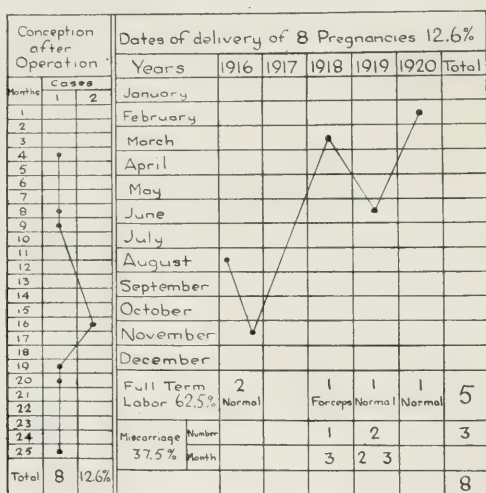 Conception
after
Operation
Months
Cases
1 2
1
2
3
4
5
6
7
8
9
10
11
12
13
14
15
16
17
18
19
20
21
22
23
24
25
Total 8 12.6%
Dates of delivery of 8 Pregnancies 12.6%
Years 1916 1917 1918 1919 1920 Total
January
February
March
April
May
June
July
August
September
October
November
December
Full Term 2 1 1 1 5
Labor 62.5% Normal Forceps Normal Normal
Miscarriage Number 1 2 3
37.5% Month 3 2 3
8